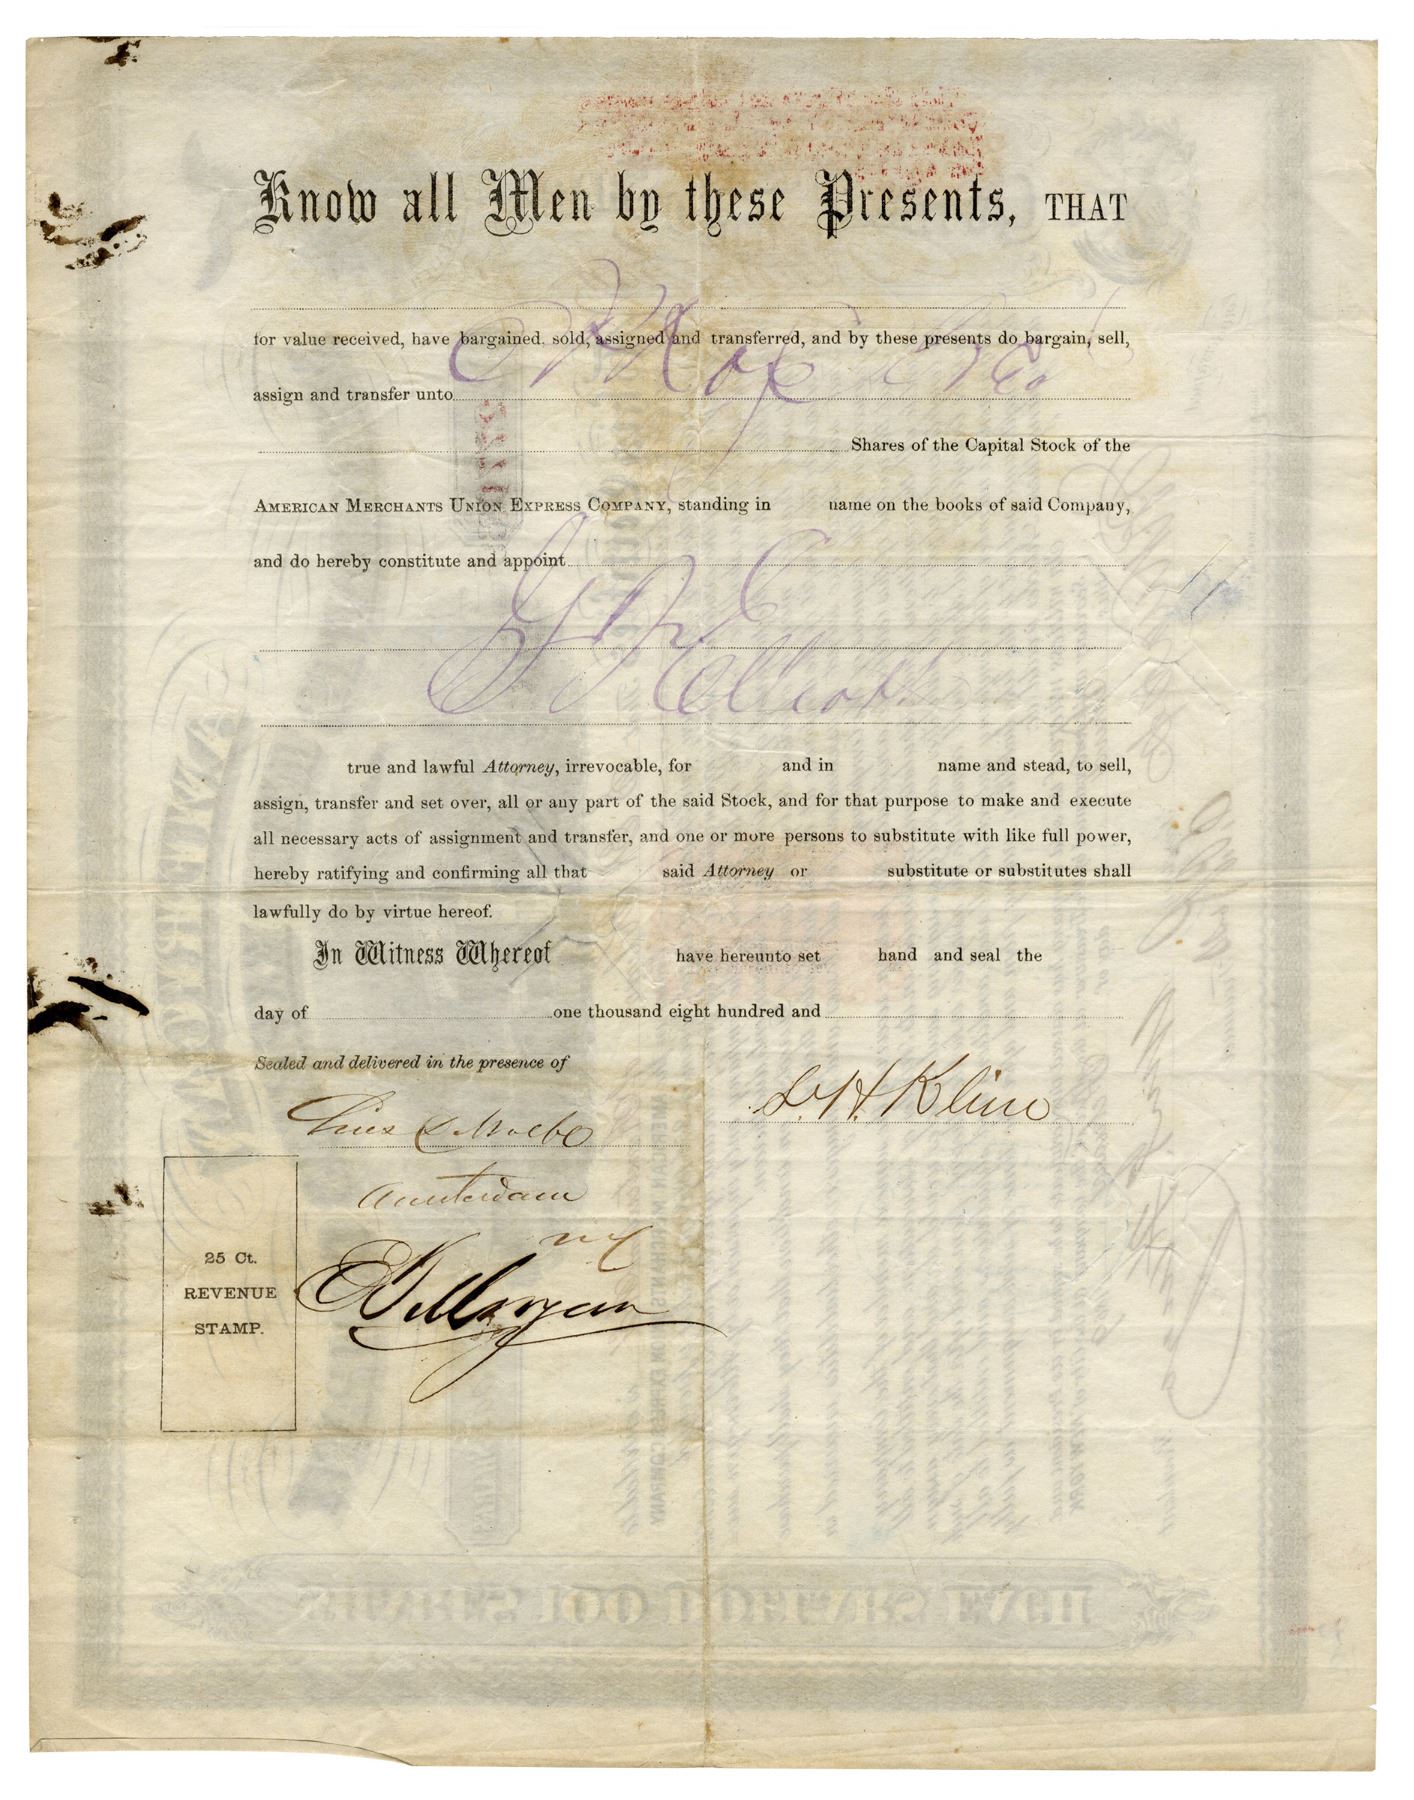 Know all Men by these Presents, THAT
for value received, have bargained, sold, assigned and transferred, and by these presents do bargain, sell,
assign and transfer unto
Shares of the Capital Stock of the
AMERICAN MERCHANTS UNION EXPRESS COMPANY, standing in name on the books of said Company,
and do hereby constitute and appoint
true and lawful Attorney, irrevocable, for and in name and stead, to sell,
assign, transfer and set over, all or any part of the said Stock, and for that purpose to make and execute
all necessary acts of assignment and transfer, and one or more persons to substitute with like full power,
hereby ratifying and confirming all that said Attorney or substitute or substitutes shall
lawfully do by virtue hereof.
In Witness Whereof have hereunto set hand and seal the
day of one thousand eight hundred and
Sealed and delivered in the presence of
H. Kline
Amsterdam
NY
Morgan
25 Ct.
REVENUE
STAMP.